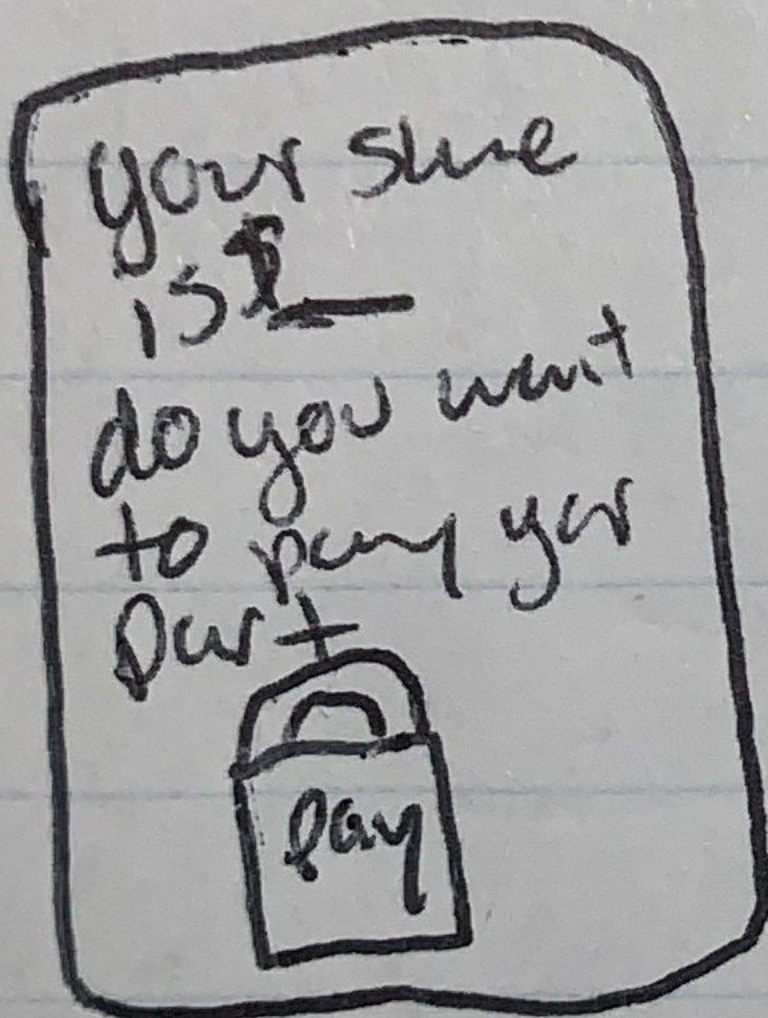 your share
is $__
do you want
to pay your
part
Pay